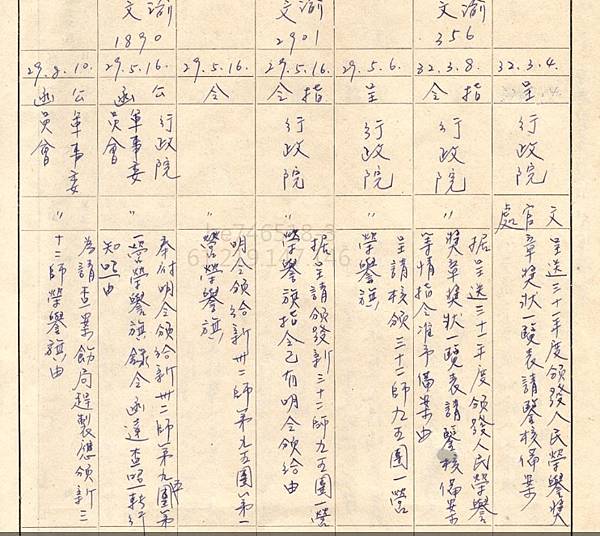 32.3.4.
呈
行政院
文官處
呈送三十一年度頒發人民榮譽獎
章獎狀一覽表請鑒核備案
渝
文
356
32.3.8.
指
令
行政院
〃
据呈送三十一年度頒發人民榮譽
獎章獎狀一覽表請鑒核備案
等情指令准予備案由
29.5.6.
呈
行政院
〃
呈請核頒三十二師九五團一營
榮譽旗
渝
文
2901
29.5.16.
指
令
行政院
〃
据呈請頒發新三十二師九五團一營
榮譽旗指令已有明令頒給由
29.5.16.
令
〃
明令頒給新卅二師第九五團第一
營榮譽旗
渝
文
1890
29.5.16.
公
函
行政院
軍事委
員會
〃
奉府明令頒給新卅二師第九五團第
一營榮譽旗錄令函達查照轉行
知照由
29.8.10.
公
函
軍事委
員會
〃
為請查案飭局趕製應頒新三
十二師榮譽旗由